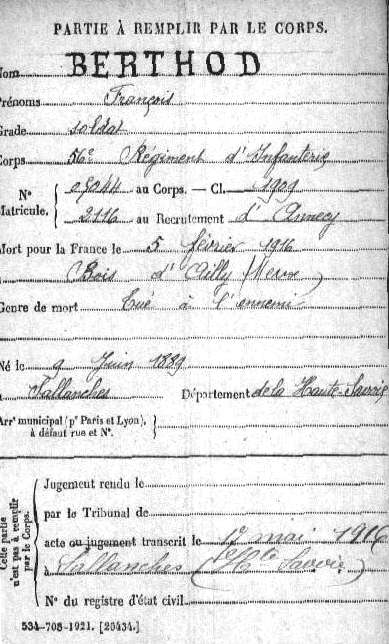 PARTIE À REMPLIR PAR LE CORPS.
Nom BERTHOD
Prénoms François
Grade soldat
Corps 56e Régiment d'Infanterie
N° Matricule. 05044 au Corps. — Cl. 1909
2116 au Recrutement d'Annecy
Mort pour la France le 5 février 1916
à Bois d'Ailly (Meuse)
Genre de mort Tué à l'ennemi
Né le 9 Juin 1889
à Sallanches Département de la Haute-Savoie
Arr' municipal (p' Paris et Lyon), à défaut rue et N°.
Cette partie n'est pas à remplir par le Corps.
Jugement rendu le
par le Tribunal de
acte ou jugement transcrit le 12 mai 1916
à Sallanches (Hte Savoie)
N° du registre d'état civil
534-708-1921. [26434.]